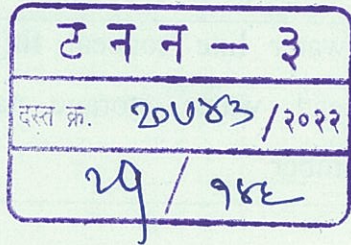 ट न न - ३
दस्त क्र. २०७४३ /२०२२
२१ / १४६